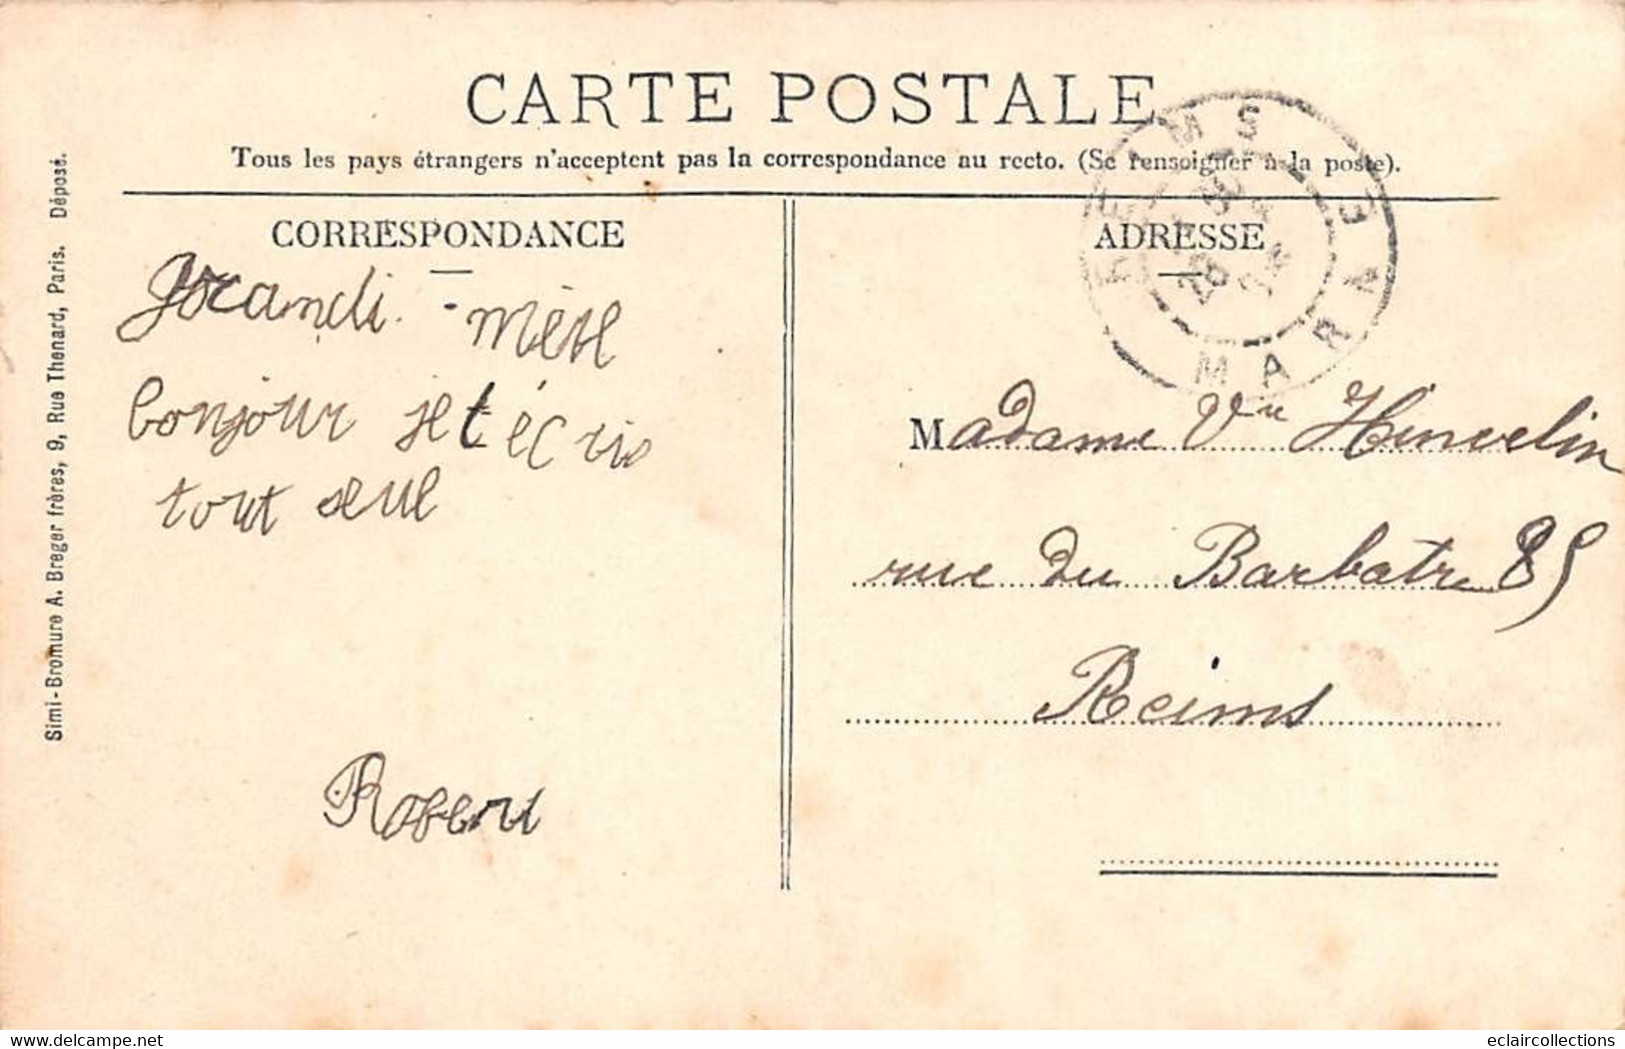 CARTE POSTALE
Tous les pays étrangers n'acceptent pas la correspondance au recto. (Se renseigner à la poste).
CORRESPONDANCE
ADRESSE
REIMS
MARNE
Grandi-mère
bonjour je t écris
tout seul
Robert
Madame Vve Hinvelin
rue du Barbatre 85
Reims
Simi-Bromure A. Breger frères, 9, Rue Thenard, Paris. Déposé.
delcampe.net
eclaircollections